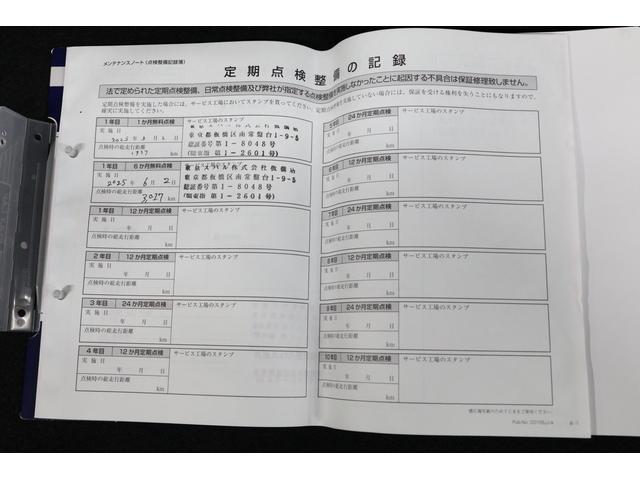 メンテナンスノート（点検整備記録簿）
定期点検整備の記録
法で定められた定期点検整備、日常点検整備及び弊社が指定する点検整備を実施しなかったことに起因する不具合は保証修理致しません。
定期点検整備を実施した場合には、サービス工場においてスタンプを貰ってください。定期点検整備を実施していない場合には、保証を受ける権利を失うことにもなりますので、
確実に実施してください。
1年目 1か月無料点検 サービス工場のスタンプ
実施日
年 月 日
点検時の総走行距離
km
東京都板橋区南常盤台1-9-5
認証番号第1-8048号
(関東指 第1-2601号)
1年目 6か月無料点検 サービス工場のスタンプ
実施日
2025年 6月 2日
点検時の総走行距離
3,027 km
東京スバル株式会社板橋店
東京都板橋区南常盤台1-9-5
認証番号第1-8048号
(関東指 第1-2601号)
1年目 12か月定期点検 サービス工場のスタンプ
実施日
年 月 日
点検時の総走行距離
km
2年目 12か月定期点検 サービス工場のスタンプ
実施日
年 月 日
点検時の総走行距離
km
3年目 24か月定期点検 サービス工場のスタンプ
実施日
年 月 日
点検時の総走行距離
km
4年目 12か月定期点検 サービス工場のスタンプ
実施日
年 月 日
点検時の総走行距離
km
5年目 24か月定期点検 サービス工場のスタンプ
実施日
年 月 日
点検時の総走行距離
km
6年目 12か月定期点検 サービス工場のスタンプ
実施日
年 月 日
点検時の総走行距離
km
7年目 24か月定期点検 サービス工場のスタンプ
実施日
年 月 日
点検時の総走行距離
km
8年目 12か月定期点検 サービス工場のスタンプ
実施日
年 月 日
点検時の総走行距離
km
9年目 24か月定期点検 サービス工場のスタンプ
実施日
年 月 日
点検時の総走行距離
km
10年目 12か月定期点検 サービス工場のスタンプ
実施日
年 月 日
点検時の総走行距離
km